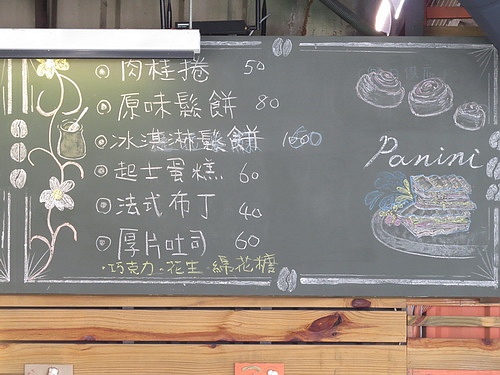 肉桂捲 50
原味鬆餅 80
冰淇淋鬆餅
起士蛋糕 60
法式布丁 40
厚片吐司 60
·巧克力·花生·綿花糖
Panini